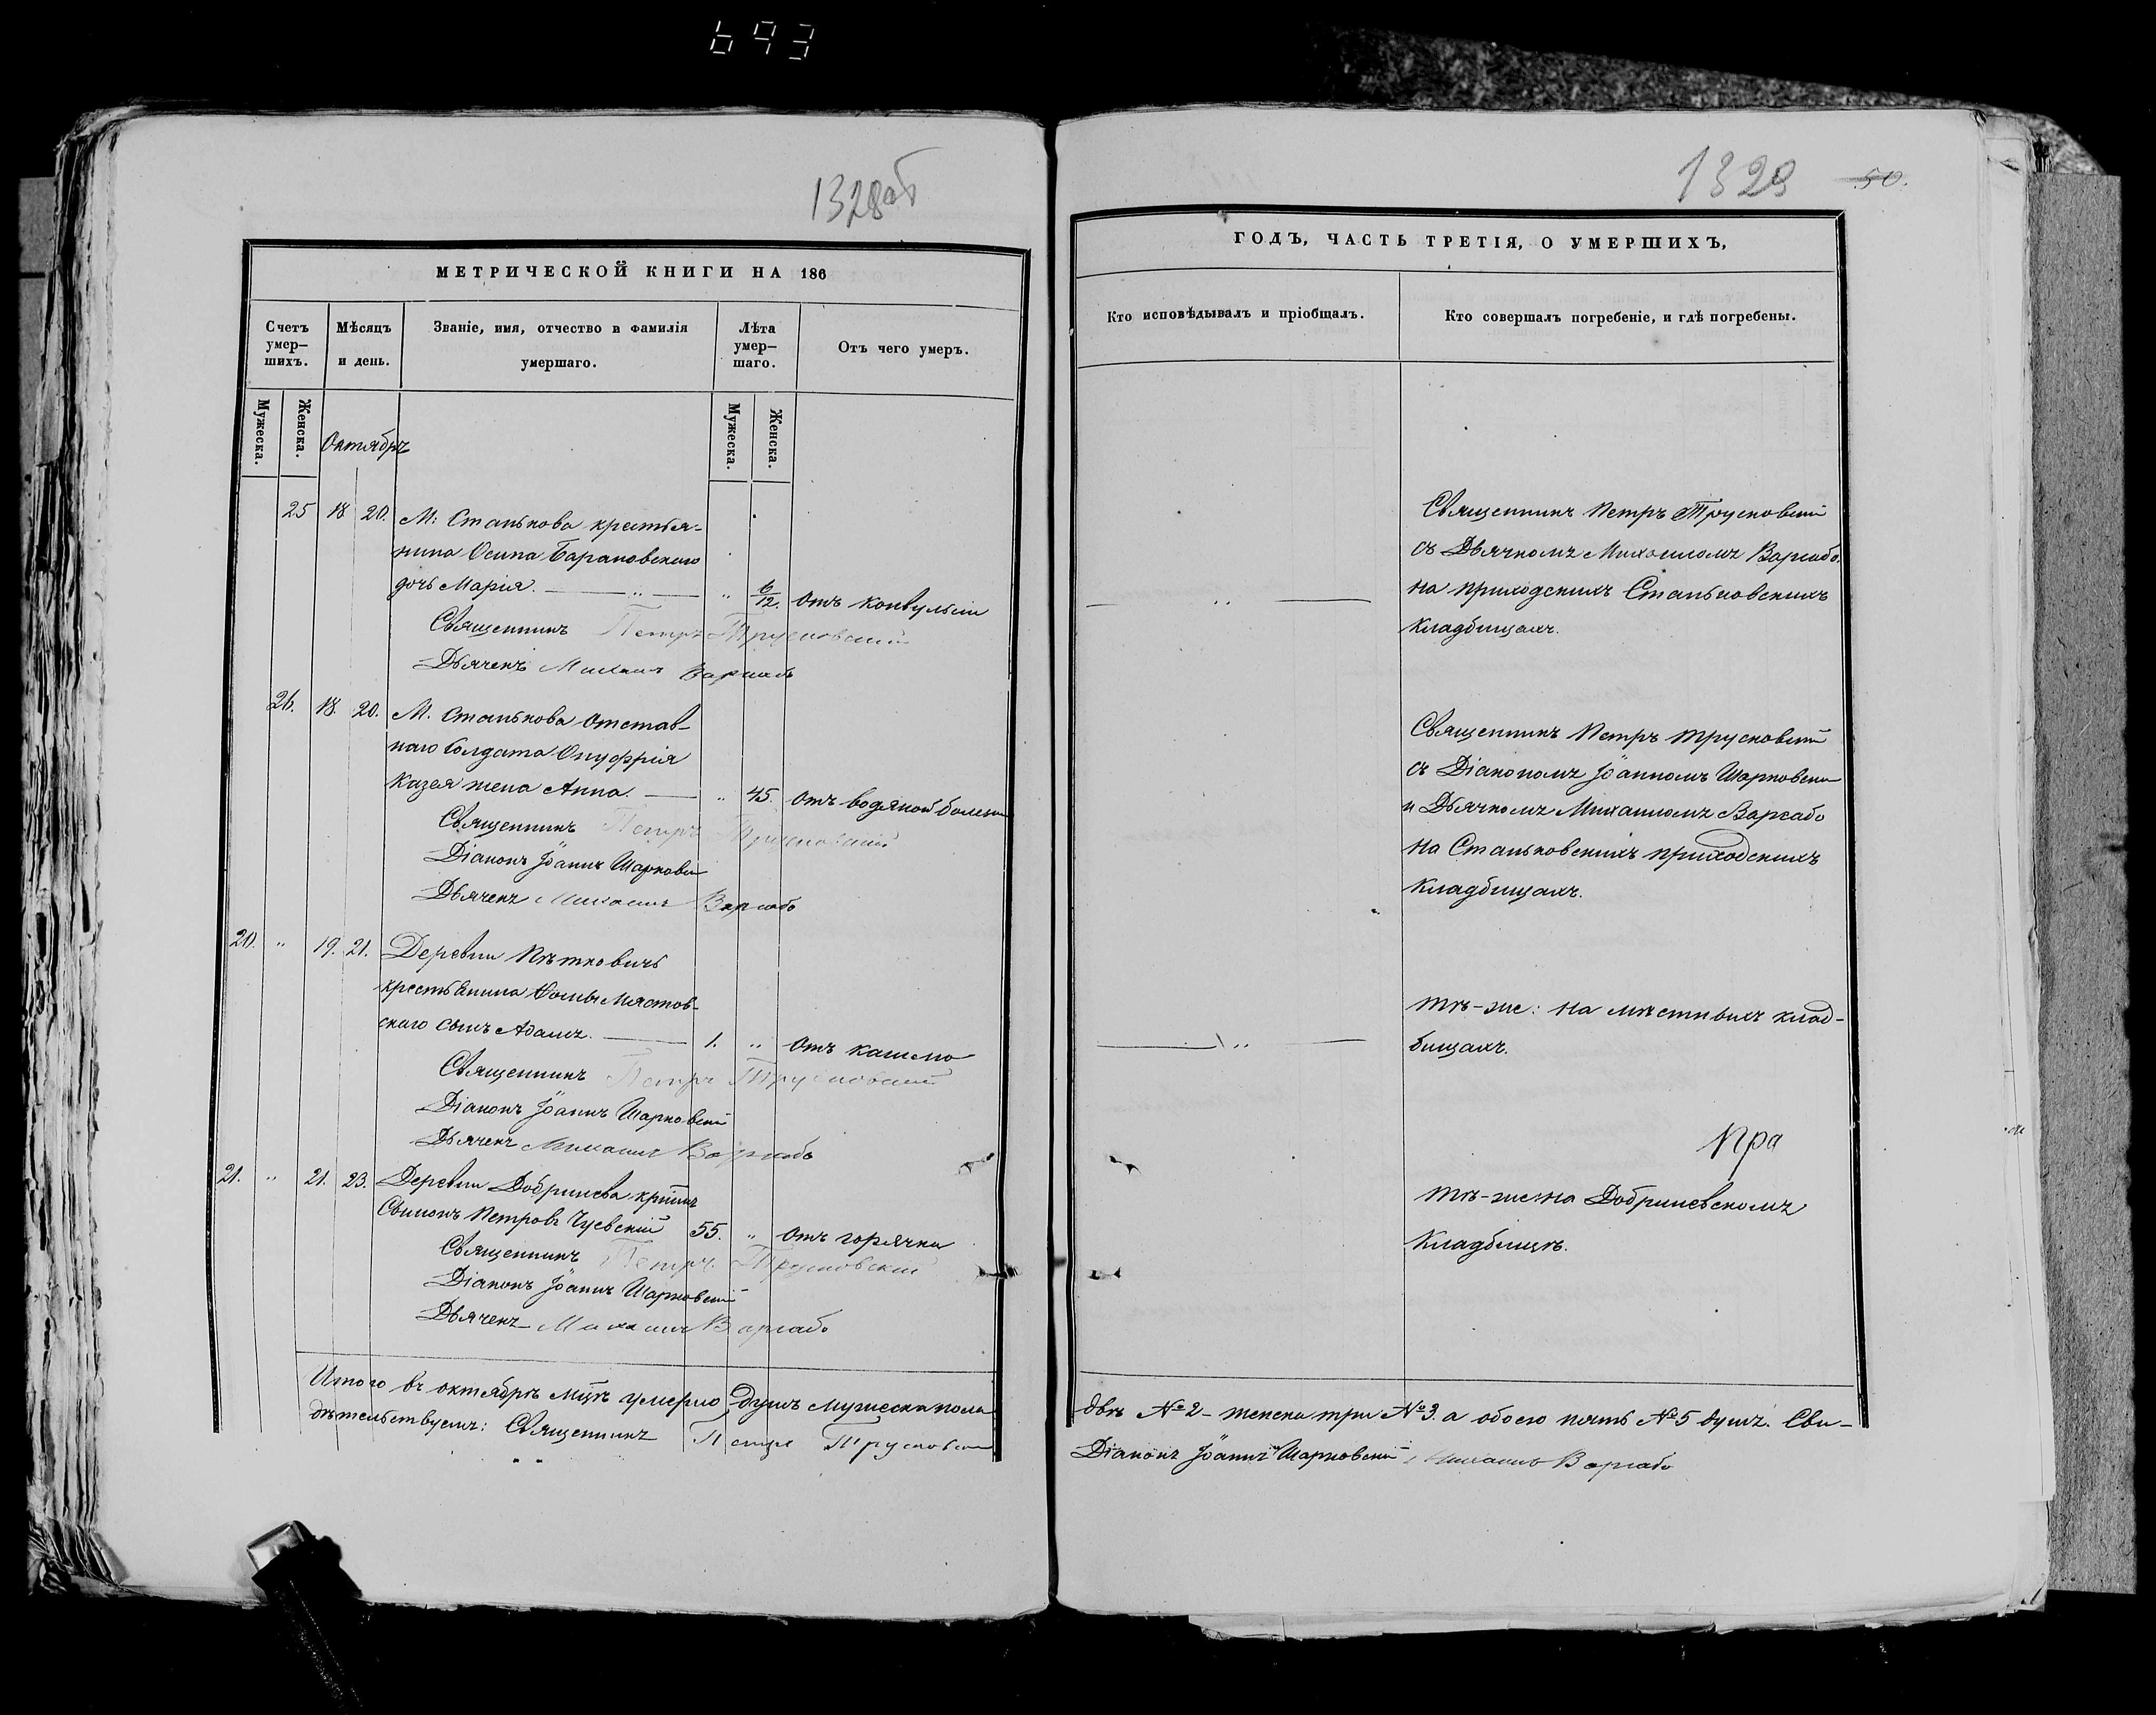 693
1328об
МЕТРИЧЕСКОЙ КНИГИ НА 186
Счетъ умер–шихъ.
Мѣсяцъ и день.
Званіе, имя, отчество и фамилія умершаго.
Лѣта умер–шаго.
Отъ чего умеръ.
Мужеска.
Женска.
Мужеска.
Женска.
Октябрь
25 18 20. М: Станькова крестья-
нина Осипа Барановскаго
дочь Марія. " 6/12. Отъ конвульсіи
Священникъ Петръ Трусковскій
Дьячекъ Михаилъ Варгабо
26. 18. 20. М. Станькова отстав-
наго Солдата Онуфрія
Казея жена Анна. " 45. Отъ водяной болезни
Священникъ Петръ Трусковскій
Діаконъ Іоаннъ Шарковскій
Дьячекъ Михаилъ Варгабо
20. " 19. 21. Деревни
крестьянина
скаго сынъ Адамъ. 1. " Отъ кашлю
Священникъ Петръ Трусковскій
Діаконъ Іоаннъ Шарковскій
Дьячекъ Михаилъ Варгабо
21. " 21. 23. Деревни Добринева
Петровъ Чуевскій 55. " Отъ горячки
Священникъ Петръ Трусковскій
Діаконъ Іоаннъ Шарковскій
Дьячекъ Михаилъ Варгабо
Итого въ октябрѣ мцѣ умерло душъ мужеска пола
дѣтельствуемъ: Священникъ Петръ Трусковскій
1329 50.
ГОДЪ, ЧАСТЬ ТРЕТІЯ, О УМЕРШИХЪ,
Кто исповѣдывалъ и пріобщалъ.
Кто совершалъ погребеніе, и гдѣ погребены.
Священникъ Петръ Трусковскій
съ Дьячкомъ Михаиломъ Варгабо.
на приходскихъ Станьковскихъ
кладбищахъ.
Священникъ Петръ Трусковскій
съ Діакономъ Іоанномъ Шарковски
и Дьячкомъ Михаиломъ Варгабо
на Станьковскихъ приходскихъ
кладбищахъ.
Тѣ-же: на мѣстныхъ клад-
бищахъ.
Пра
Тѣ-же на Добриневскомъ
кладбищѣ.
двѣ №2– женска три №3. а обоего пять №5 душъ. Сви–
Діаконъ Іоаннъ Шарковскій Михаилъ Варгабо